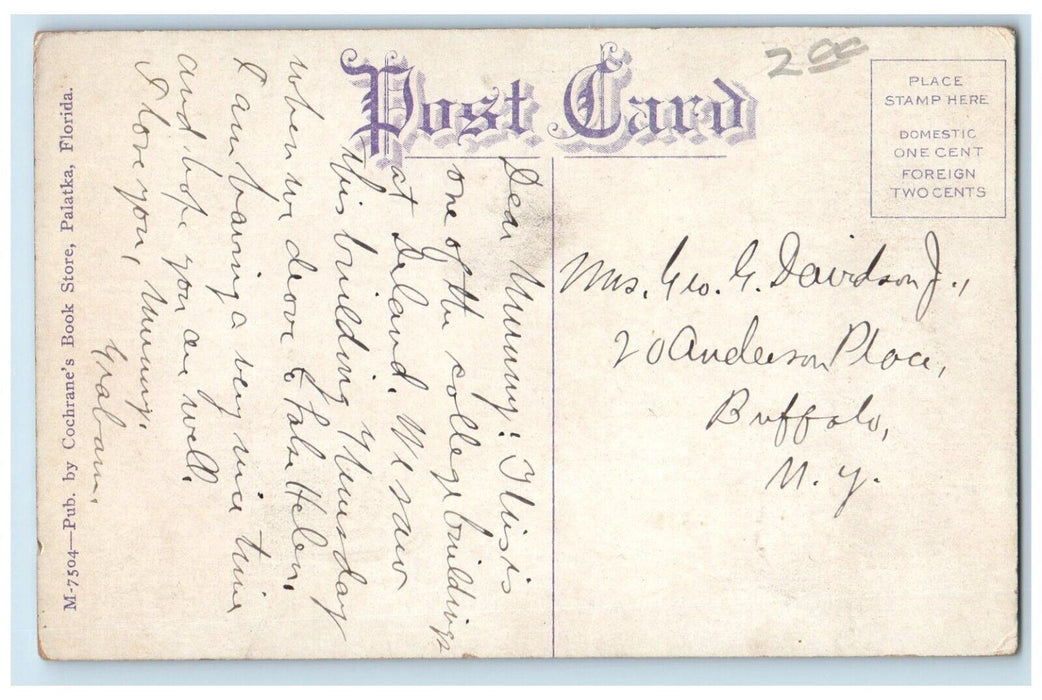 Post Card
2.00
PLACE
STAMP HERE
DOMESTIC
ONE CENT
FOREIGN
TWO CENTS
Dear Mummy: This is
one of the college buildings
at Deland. We saw
this building Thursday
when we drove to Lake Helen.
I am having a very nice time
and hope you are well.
I love you, Mummy.
Graham.
Mrs. Geo. G. Davidson Jr.,
20 Anderson Place,
Buffalo,
N. Y.
M-7504—Pub. by Cochrane's Book Store, Palatka, Florida.